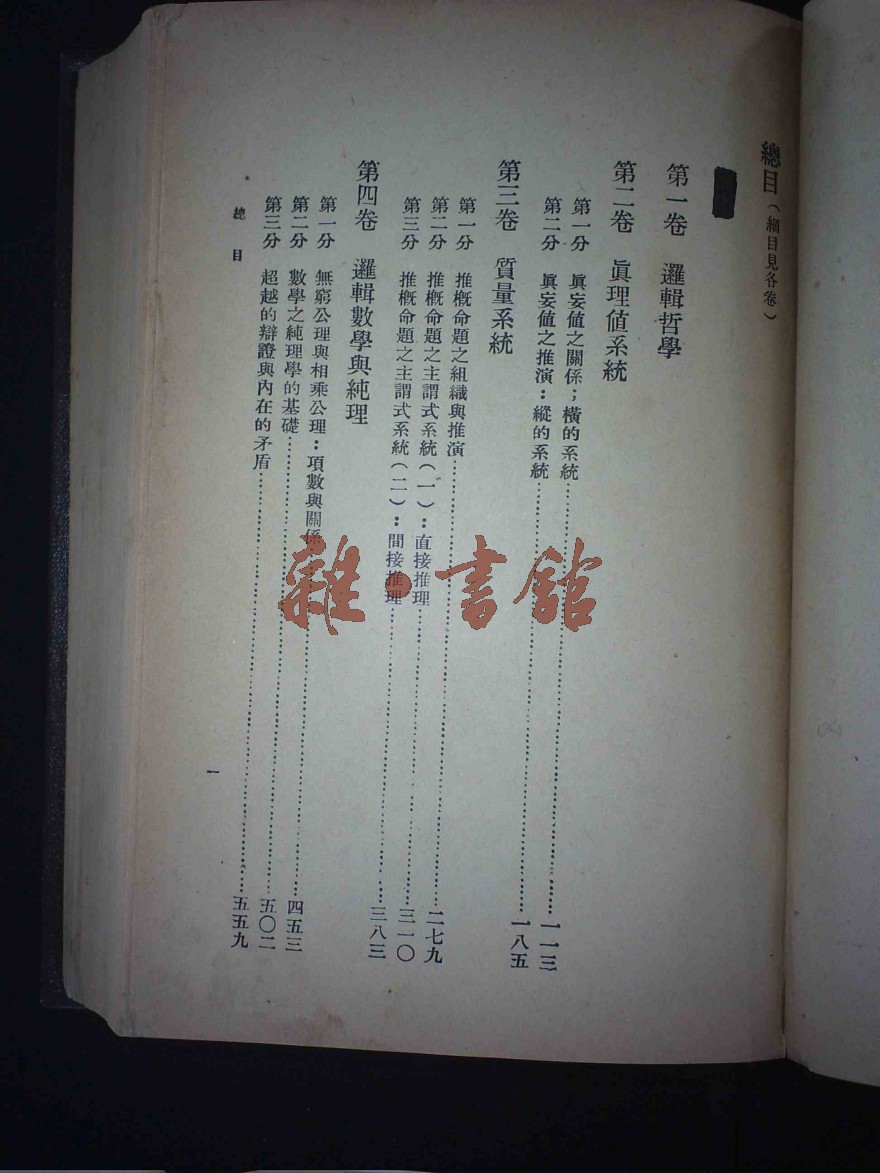 總目（細目見各卷）
第一卷　邏輯哲學
第二卷　眞理值系統
第一分　眞妄值之關係；橫的系統……一一三
第二分　眞妄值之推演：縱的系統……一八五
第三卷　質量系統
第一分　推概命題之組織與推演……二七九
第二分　推概命題之主謂式系統（一）：直接推理……三一〇
第三分　推概命題之主謂式系統（二）：間接推理……三八三
第四卷　邏輯數學與純理
第一分　無窮公理與相乘公理：項數與關係……四五三
第二分　數學之純理學的基礎……五〇二
第三分　超越的辯證與內在的矛盾……五五九
總目
一
雜·書館